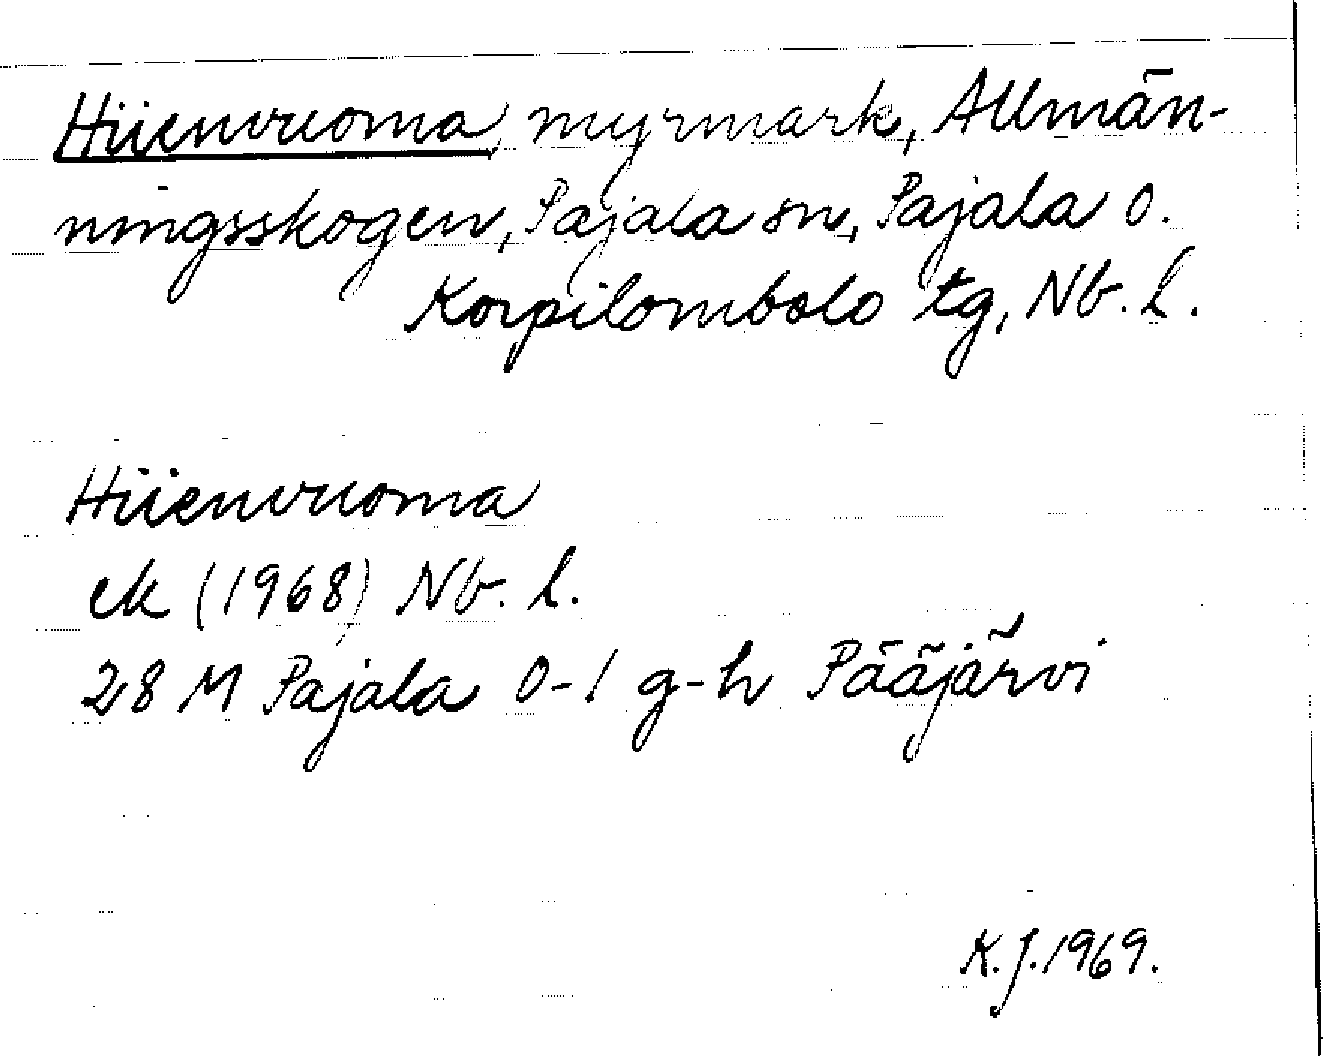 Hiienvuoma, myrmark, Allmän-
ningsskogen, Pajala sn, Pajala o.
Korpilombolo tg, Nb. l.
Hiienvuoma
ek (1968) Nb. l.
28 M Pajala 0-1 g-h Pääjärvi
K.J. 1969.